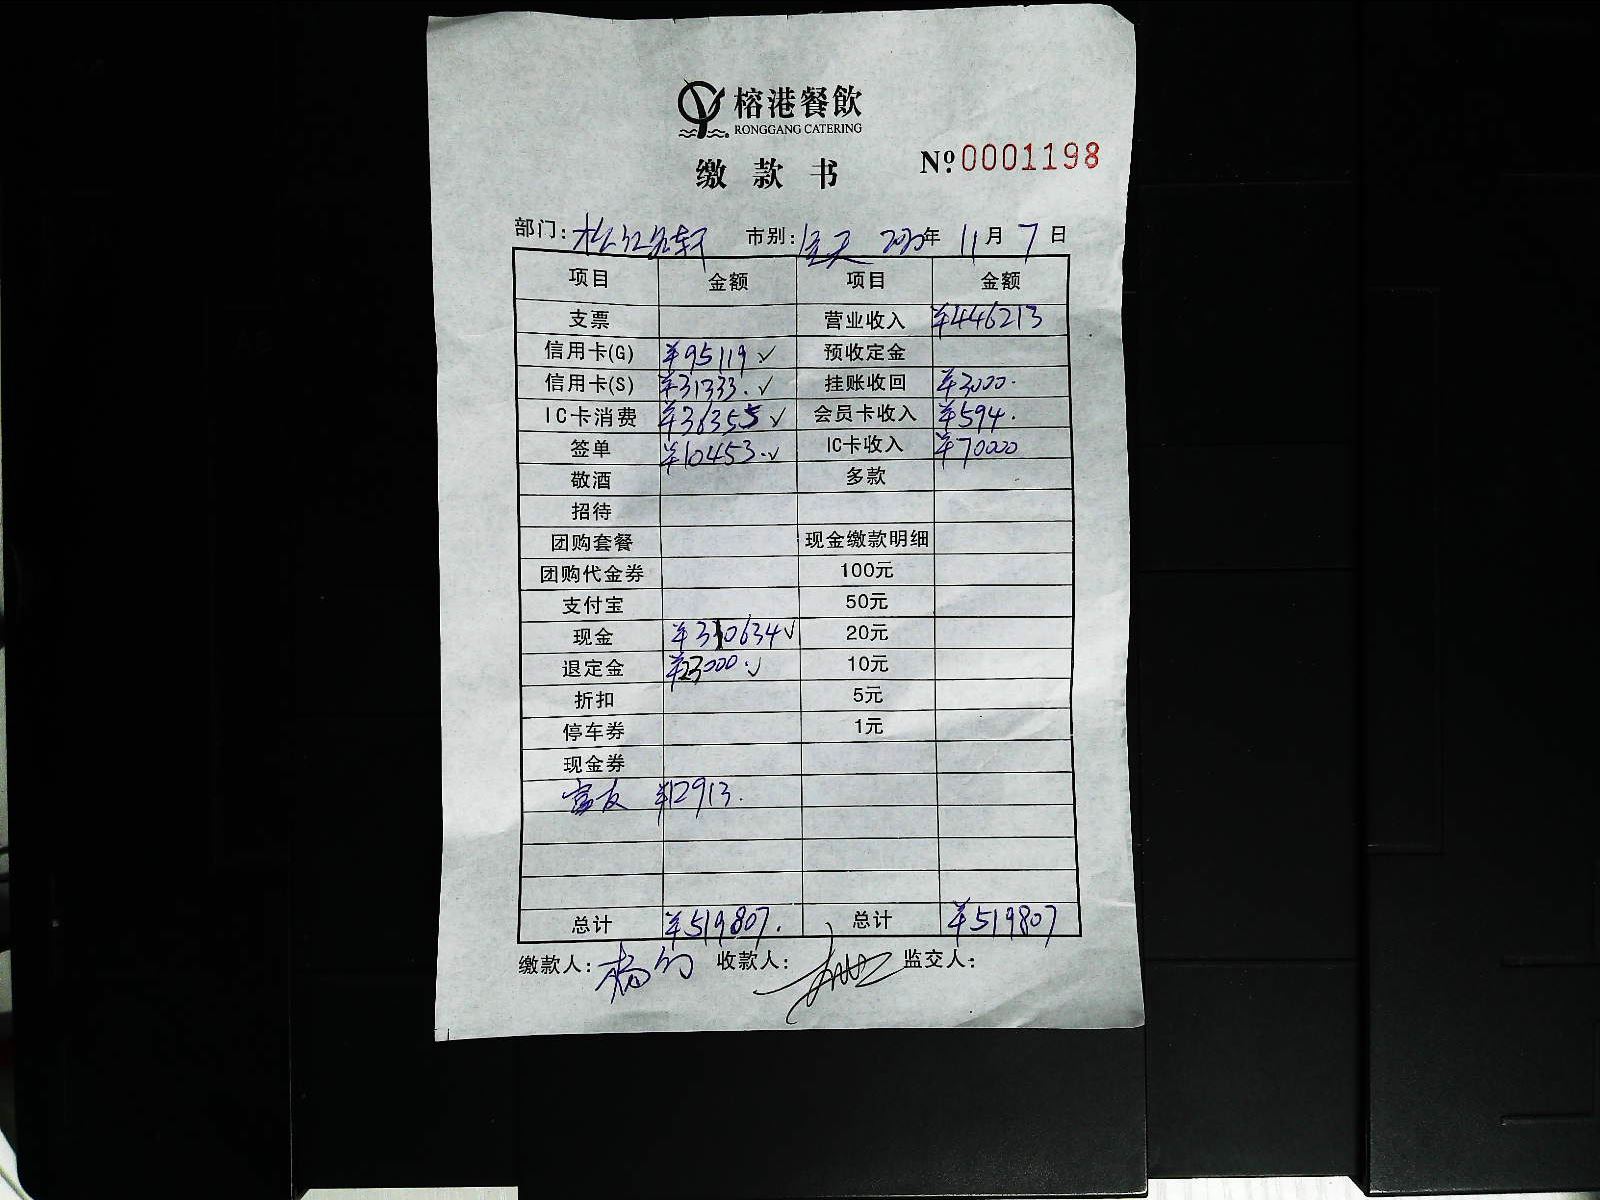 榕港餐飲
RONGGANG CATERING
缴款书 №0001198
部门: 市别:全天 2020年 11月 7日
项目 金额 项目 金额
支票 营业收入 ¥446213
信用卡(G) ¥95119 ✓ 预收定金
信用卡(S) ¥31333. ✓ 挂账收回 ¥3000.
IC卡消费 ¥36355 ✓ 会员卡收入 ¥594.
签单 ¥10453. ✓ IC卡收入 ¥70000
敬酒 多款
招待
团购套餐 现金缴款明细
团购代金券 100元
支付宝 50元
现金 ¥310634 ✓ 20元
退定金 ¥23000. ✓ 10元
折扣 5元
停车券 1元
现金券
富友 ¥12913.
总计 ¥519807. 总计 ¥519807
缴款人: 收款人: 监交人: